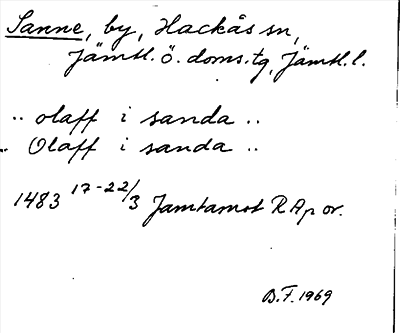 Sanne, by, Hackås sn,
Jämtl. ö. doms.tg, Jämtl.l.
.. olaff i sanda ..
.. Olaff i sanda ..
1483 17-22/3 Jamtamot RAp or.
B.F. 1969